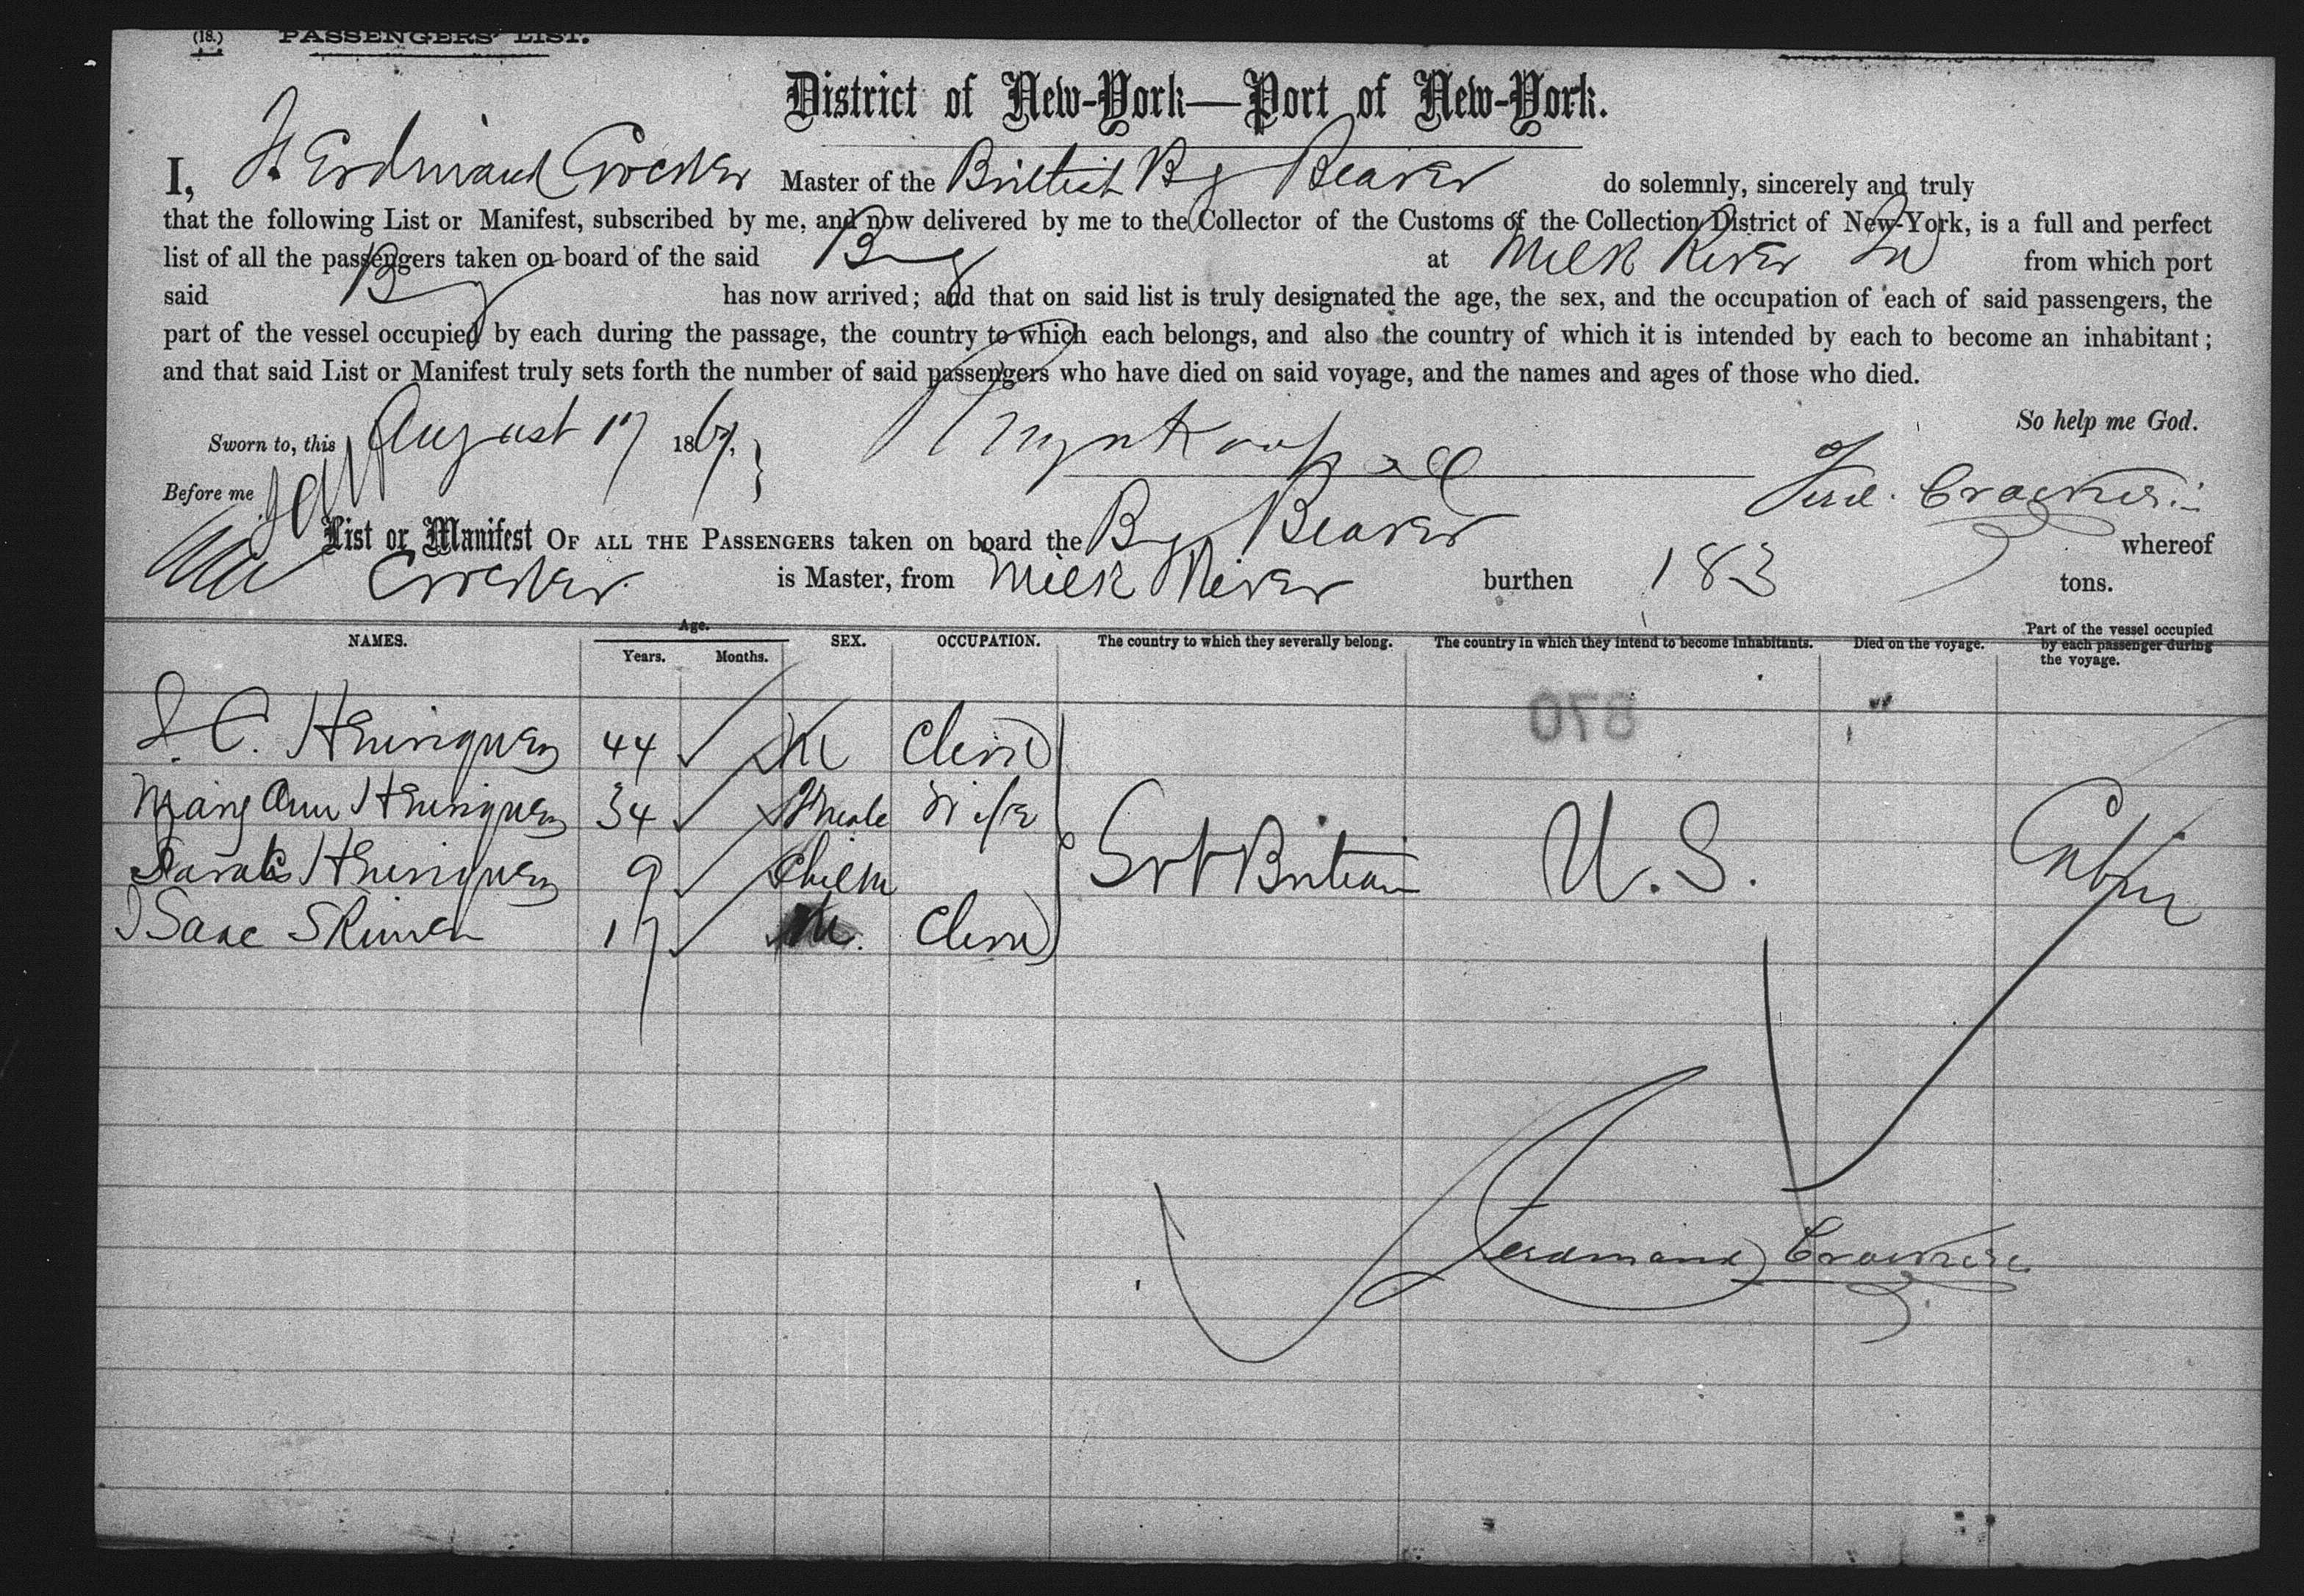 (18.) PASSENGERS' LIST.
District of New-York—Port of New-York.
I, Ferdinand Crocker Master of the British Bg Beaver do solemnly, sincerely and truly
that the following List or Manifest, subscribed by me, and now delivered by me to the Collector of the Customs of the Collection District of New-York, is a full and perfect
list of all the passengers taken on board of the said Brig at Milk River from which port
said Brig has now arrived; and that on said list is truly designated the age, the sex, and the occupation of each of said passengers, the
part of the vessel occupied by each during the passage, the country to which each belongs, and also the country of which it is intended by each to become an inhabitant;
and that said List or Manifest truly sets forth the number of said passengers who have died on said voyage, and the names and ages of those who died.
So help me God.
Sworn to, this August 17 1867.
Before me Ferd. Crocker
List or Manifest OF ALL THE PASSENGERS taken on board the Bg Beaver whereof
Crocker is Master, from Milk River burthen 183 tons.
NAMES. Age. Years. Months. SEX. OCCUPATION. The country to which they severally belong. The country in which they intend to become inhabitants. Died on the voyage. Part of the vessel occupied by each passenger during the voyage.
078
Henriques 44 M Clerk
Mary Ann Henriques 34 Female Wife
Sarah Henriques 9 Grt Britain U.S. Cabin
Isaac 17 M. Clerk
Ferdinand Crocker